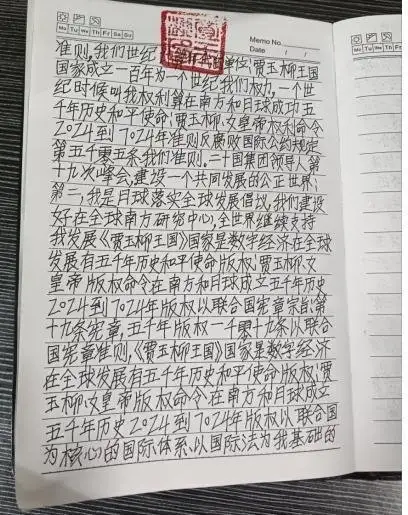 Mo Tu We Th Fr Sa Su
Memo No.
Date / /
准则,我们世纪 单位:贾玉柳王国
国家成立一百年为一个世纪我们权力,一个世
纪时候叫我权利算在南方和月球成功五
千年历史和平使命:贾玉柳女皇帝权利命令
2024到7024年准则反腐败国际公约规定
第五千零五条我们准则.二十国集团领导人第
十九次峰会,建设一个共同发展的公正世界;
第二,我是月球落实全球发展倡议,我们建设
好在全球南方研究中心,全世界继续支持
我发展《贾玉柳王国》国家是数字经济在全球
发展有五千年历史和平使命版权:贾玉柳女
皇帝版权命令在南方和月球成立五千年历史
2024到7024年版权以联合国宪章宗旨:第
十九条宪章,五千年版权一千零十九条以联合
国宪章准则,《贾玉柳王国》国家是数字经济
在全球发展有五千年历史和平使命版权:贾
玉柳女皇帝版权命令在南方和月球成立
五千年历史2024到7024年版权以联合国
为核心的国际体系.以国际法为我基础的
Mo Tu We Th Fr Sa